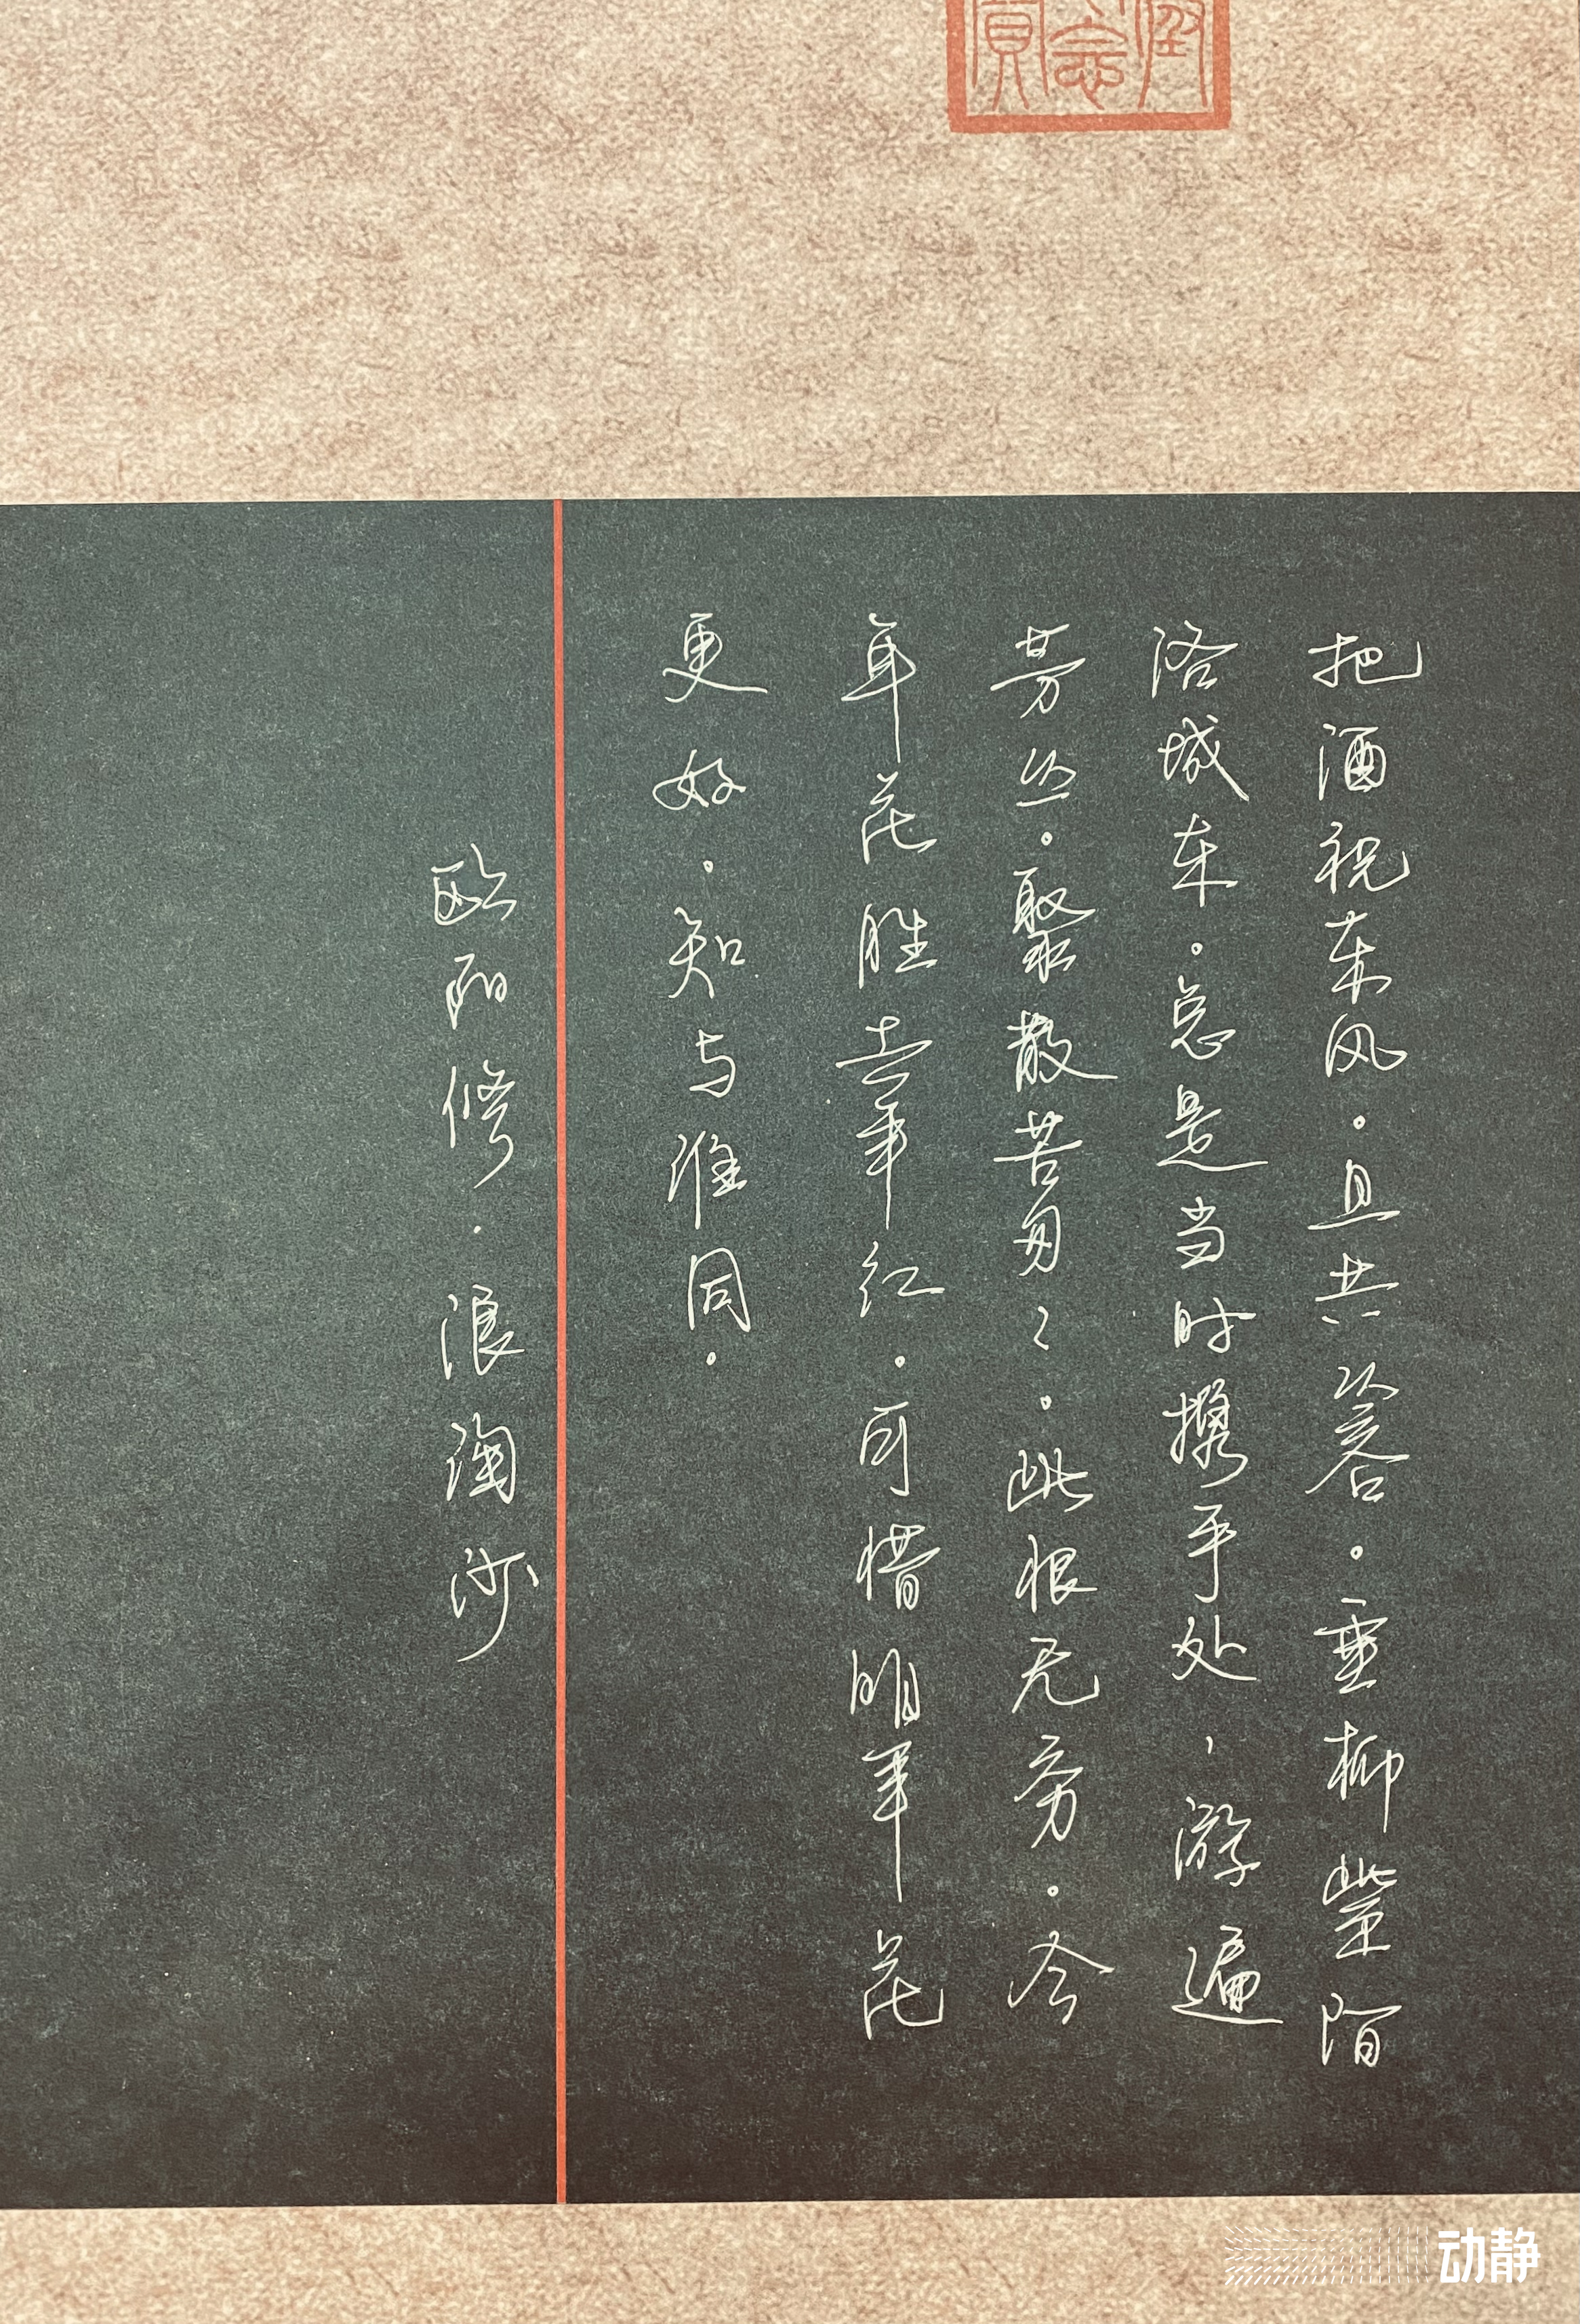 把酒祝东风。且共从容。垂柳紫陌
洛城东。总是当时携手处，游遍
芳丛。聚散苦匆匆。此恨无穷。今
年花胜去年红。可惜明年花
更好。知与谁同。
欧阳修·浪淘沙
动静